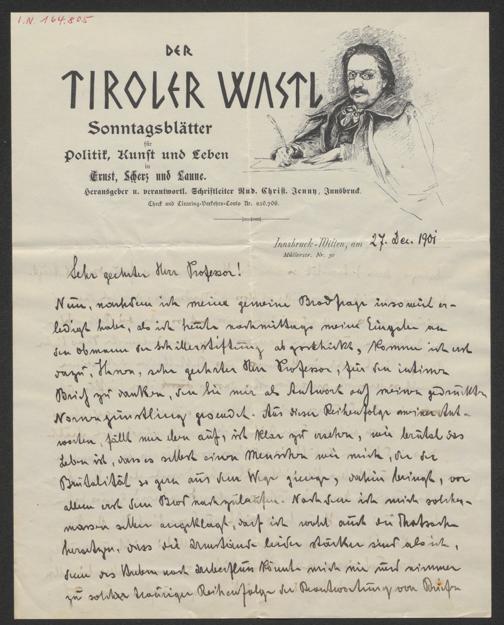 I.N. 164.805
DER
TIROLER WASTL
Sonntagsblätter
für
Politik, Kunst und Leben
in
Ernst, Scherz und Laune.
Herausgeber u. verantwortl. Schriftleiter Rud. Christ. Jenny, Innsbruck.
Check und Clearing-Verkehrs-Conto Nr.
Innsbruck-Wilten, am 27. Dec. 1901
Müllerstr. Nr.
Sehr geehrter Herr Professor!
Nun, nachdem ich meine gemeine Brodfrage insoweit er-
ledigt habe, als ich heute nachmittags meine Eingabe an
den Obmann der Schillerstiftung abgeschickt, komme ich erst
dazu, Ihnen, sehr geehrter Herr Professor, für den intimen
Brief zu danken, den Sie mir als Antwort auf meinen gedruckten
gesendet. Aus dieser Reihenfolge meiner Ant-
worten, fällt mir dem auf, ich klar zu ersehen, wie brutal das
Leben ist, dass es selbst einen Menschen wie mich, der der
Brutalität so gern aus dem Wege gienge, dahin bringt, vor
allem erst dem Brod nachzulaufen. Nachdem ich mich solcher-
massen selber angeklagt, darf ich wohl auch die Thatsache
hersetzen, dass die Umstände leider stärker sind als ich,
denn des Andern nach könnte mich nie und nimmer
zu solcher trauriger Reihenfolge der Beantwortung von Briefen